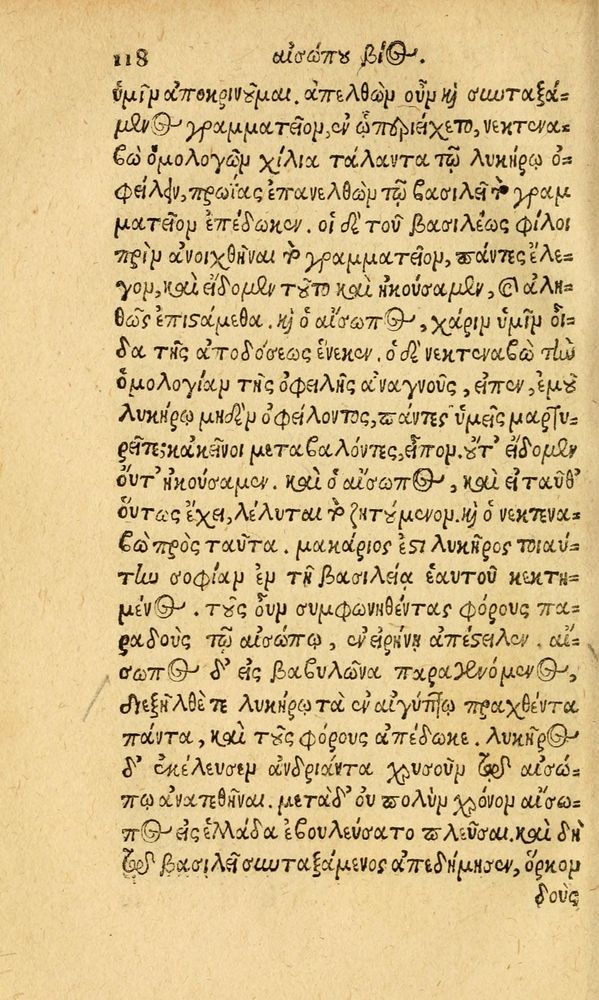 118 αἰσώπου βίος.
ὑμῖν ἀποκρινοῦμαι. ἀπελθὼν οὖν καὶ συνταξά-
μενος γραμματεῖον, ἐν ᾧ περιείχετο, νεκτενα-
βὼ ὁμολογῶν χίλια τάλαντα τῷ λυκήρῳ ὀ-
φείλειν, πρωίας ἐπανελθὼν τῷ βασιλεῖ τὸ γραμ
ματεῖον ἐπέδωκεν. οἱ δὲ τοῦ βασιλέως φίλοι
πρὶν ἀνοιχθῆναι τὸ γραμματεῖον, πάντες ἔλε-
γον, καὶ εἴδομεν τοῦτο καὶ ἠκούσαμεν, καὶ ἀλη-
θῶς ἐπιστάμεθα. καὶ ὁ αἴσωπος, χάριν ὑμῖν οἶ-
δα τῆς ἀποδόσεως ἕνεκεν. ὁ δὲ νεκτεναβὼ τὴν
ὁμολογίαν τῆς ὀφειλῆς ἀναγνοὺς, εἶπεν, ἐμοῦ
λυκήρῳ μηδὲν ὀφείλοντος, πάντες ὑμεῖς μαρτυ-
ρεῖτε; κἀκεῖνοι μεταβαλόντες, εἶπον. οὔτ' εἴδομεν
οὔτ' ἠκούσαμεν. καὶ ὁ αἴσωπος, καὶ εἰ ταῦθ'
οὕτως ἔχει, λέλυται τὸ ζητούμενον. καὶ ὁ νεκτενα-
βὼ πρὸς ταῦτα. μακάριος ἐστι λυκῆρος τοιαύ-
την σοφίαν ἐν τῇ βασιλείᾳ ἑαυτοῦ κεκτη-
μένος. τοὺς οὖν συμφωνηθέντας φόρους πα-
ραδοὺς τῷ αἰσώπῳ, ἐν εἰρήνῃ ἀπέστειλεν. αἴ-
σωπος δ' εἰς βαβυλῶνα παραγενόμενος,
διεξῆλθέ τε λυκήρῳ τὰ ἐν αἰγύπτῳ πραχθέντα
πάντα, καὶ τοὺς φόρους ἀπέδωκε. λυκῆρος
δ' ἐκέλευσεν ἀνδριάντα χρυσοῦν τῷ αἰσώ-
πῳ ἀνατεθῆναι. μετὰ δ' οὐ πολὺν χρόνον αἴσω-
πος εἰς ἑλλάδα ἐβουλεύσατο πλεῦσαι. καὶ δὴ
τῷ βασιλεῖ συνταξάμενος ἀπεδήμησεν, ὅρκον
δοὺς